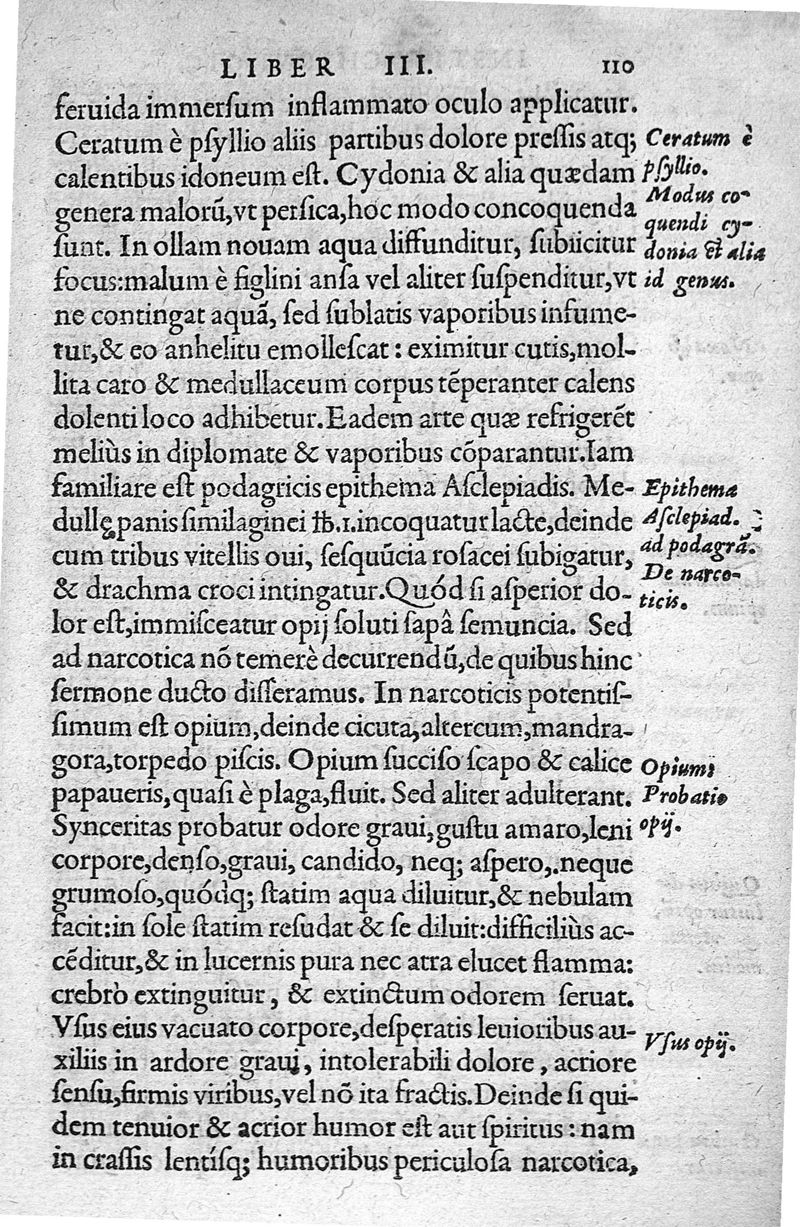 LIBER III. 110
feruida immersum inflammato oculo applicatur.
Ceratum è psyllio aliis partibus dolore pressis atq;
calentibus idoneum est. Cydonia & alia quædam
genera malorũ, vt persica, hoc modo concoquenda
sunt. In ollam nouam aqua diffunditur, subiicitur
focus: malum è figlini ansa vel aliter suspenditur, vt
ne contingat aquã, sed sublatis vaporibus infume-
tur, & eo anhelitu emollescat: eximitur cutis, mol-
lita caro & medullaceum corpus tẽperanter calens
dolenti loco adhibetur. Eadem arte quæ refrigerẽt
meliùs in diplomate & vaporibus cõparantur. Iam
familiare est podagricis epithema Asclepiadis. Me-
dullę panis similaginei ℔.1. incoquatur lacte, deinde
cum tribus vitellis oui, sesquũcia rosacei subigatur,
& drachma croci intingatur. Quód si asperior do-
lor est, immisceatur opij soluti sapâ semuncia. Sed
ad narcotica nõ temerè decurrendũ, de quibus hinc
sermone ducto disseramus. In narcoticis potentis-
simum est opium, deinde cicuta, altercum, mandra-
gora, torpedo piscis. Opium succiso scapo & calice
papaueris, quasi è plaga, fluit. Sed aliter adulterant.
Synceritas probatur odore graui, gustu amaro, leni
corpore, denso, graui, candido, neq; aspero, neque
grumoso, quódq; statim aqua diluitur, & nebulam
facit: in sole statim resudat & se diluit: difficiliùs ac-
cẽditur, & in lucernis pura nec atra elucet flamma:
crebrò extinguitur, & extinctum odorem seruat.
Vsus eius vacuato corpore, desperatis leuioribus au-
xiliis in ardore graui, intolerabili dolore, acriore
sensu, firmis viribus, vel nõ ita fractis. Deinde si qui-
dem tenuior & acrior humor est aut spiritus: nam
in crassis lentísq; humoribus periculosa narcotica,
Ceratum è
psyllio.
Modus co-
quendi cy-
donia & alia
id genus.
Epithema
Asclepiad.
ad podagrã.
De narco-
ticis.
Opium;
Probatio
opij.
Vsus opij.